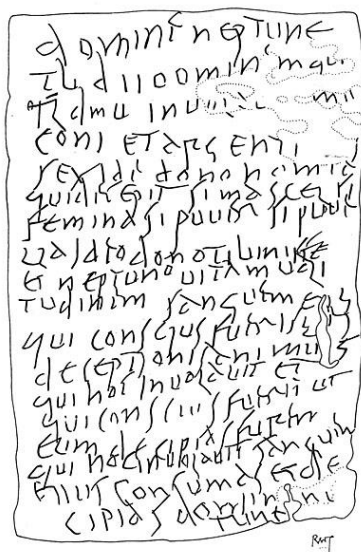 domine neptune
qui
inuo mu
coni et arg enti
sex ideo dono nomina
qui decepit si mascel si
femina si puuer si puuel
ideo dono tibi niske
et neptuno uitam uali
tudinem sanguem eius
qui conscius fueris eius
deceptionis animus
qui hoc inuolauit et
qui conscius fuerit ut
eum decipias furem
qui hoc inuolauit sanguem
eiius consumas et de
cipias domine ne
ptune